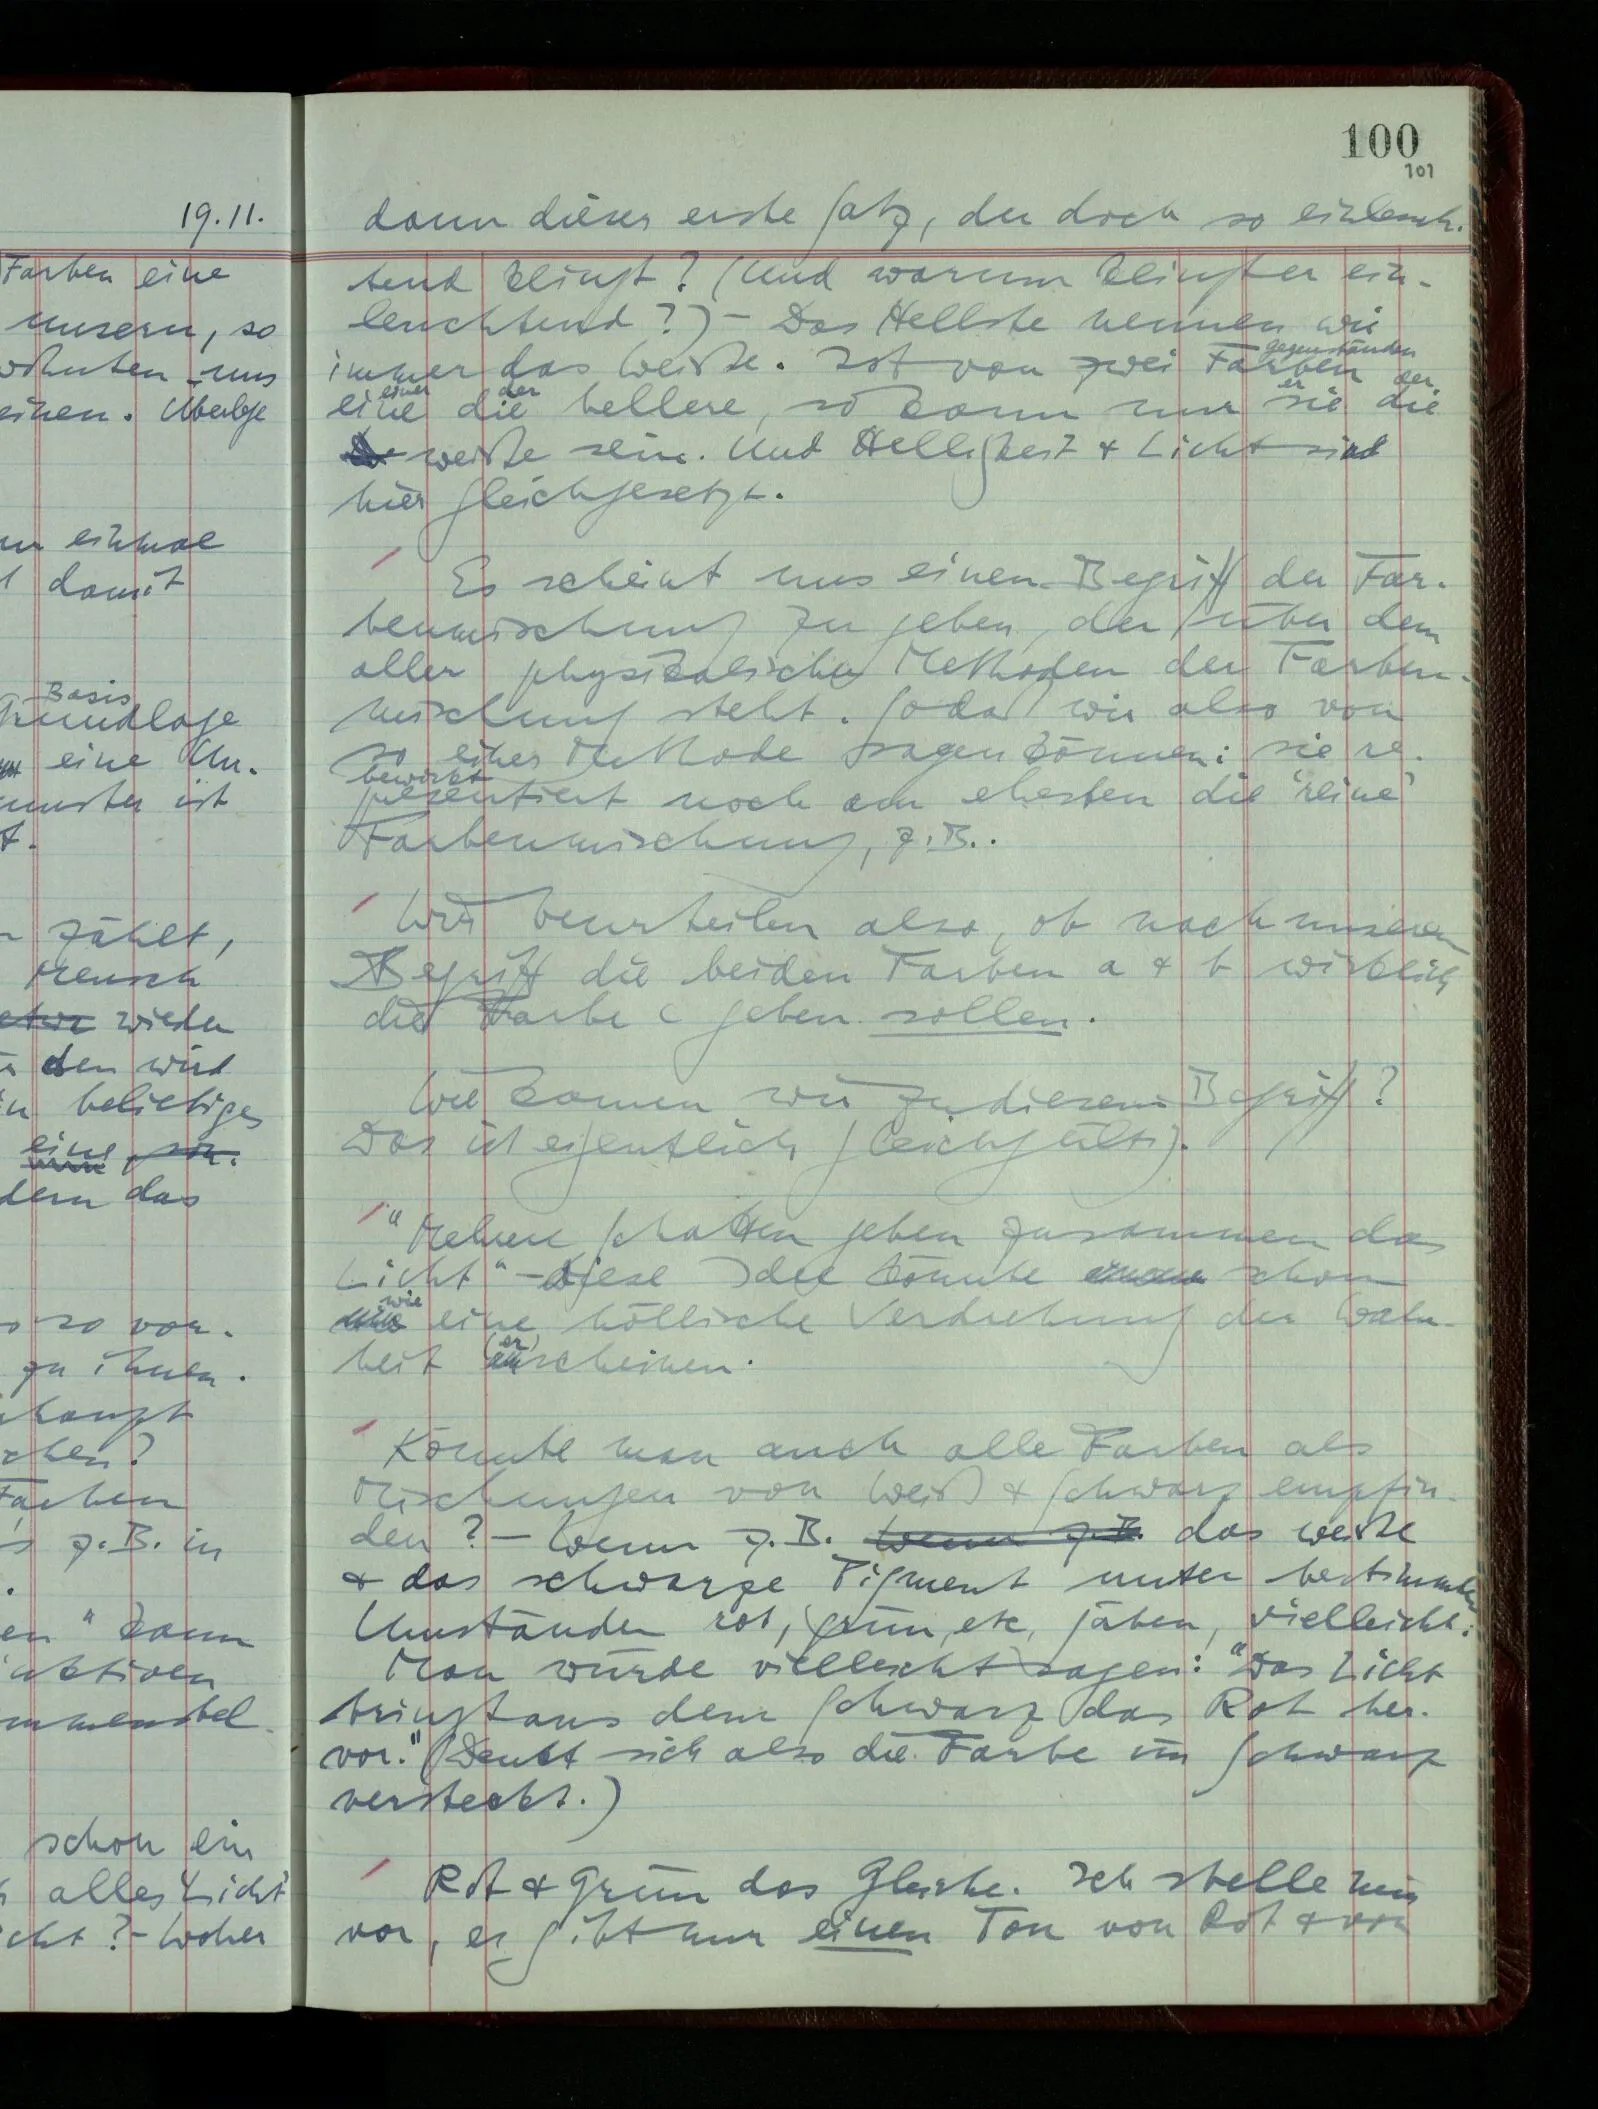 19.11.
Farben eine
unsern, so
wohnten uns
einen. Überlege
einmal
damit
Basis
Grundlage
eine Un-
muster ist
zählt,
Mensch
etwa wieder
den wird
beliebiges
eine
dern das
so vor-
zu ihnen.
haupt
chen?
Farben
z.B. in
en" kann
aktiven
mmenstel-
schon ein
alles Licht
cht? - Woher
100
101
dann dieser erste Satz, der doch so einleuch-
tend klingt? (Und warum klingt er ein-
leuchtend?) – Das Hellste nennen wir
gegenständen
immer das Weiße. Ist von zwei Farben
einer der er der
eine die hellere, so kann nur sie die
weiße sein. Und Helligkeit & Licht sind
hier gleichgesetzt.
Es scheint uns einen Begriff der Far-
benmischung zu geben, der über dem
aller physikalischen Methoden der Farben-
mischung steht. Sodaß wir also von
so einer Methode sagen können: sie re-
bewirkt
präsentiert noch am ehesten die 'reine'
Farbenmischung, z.B..
Wir beurteilen also, ob nach unserem
Begriff die beiden Farben a & b wirklich
die Farbe c geben sollen.
Wie kamen wir zu diesem Begriff?
Das ist eigentlich gleichgültig.
"Mehrere Schatten geben zusammen das
Licht" – diese Idee könnte schon
wie
eine höllische Verdrehung der Wahr-
(er)
heit scheinen.
Könnte man auch alle Farben als
Mischungen von Weiß & Schwarz empfin-
den? – Wenn z.B. wenn z.B. das weiße
& das schwarze Pigment unter bestimmten
Umständen rot, grün, etc, gäben, vielleicht.
Man würde vielleicht sagen: "Das Licht
bringt aus dem Schwarz das Rot her-
vor." (Denkt sich also die Farbe im Schwarz
versteckt.)
Rot & Grün das Gleiche. Ich stelle mir
vor, es gibt nur einen Ton von Rot & von